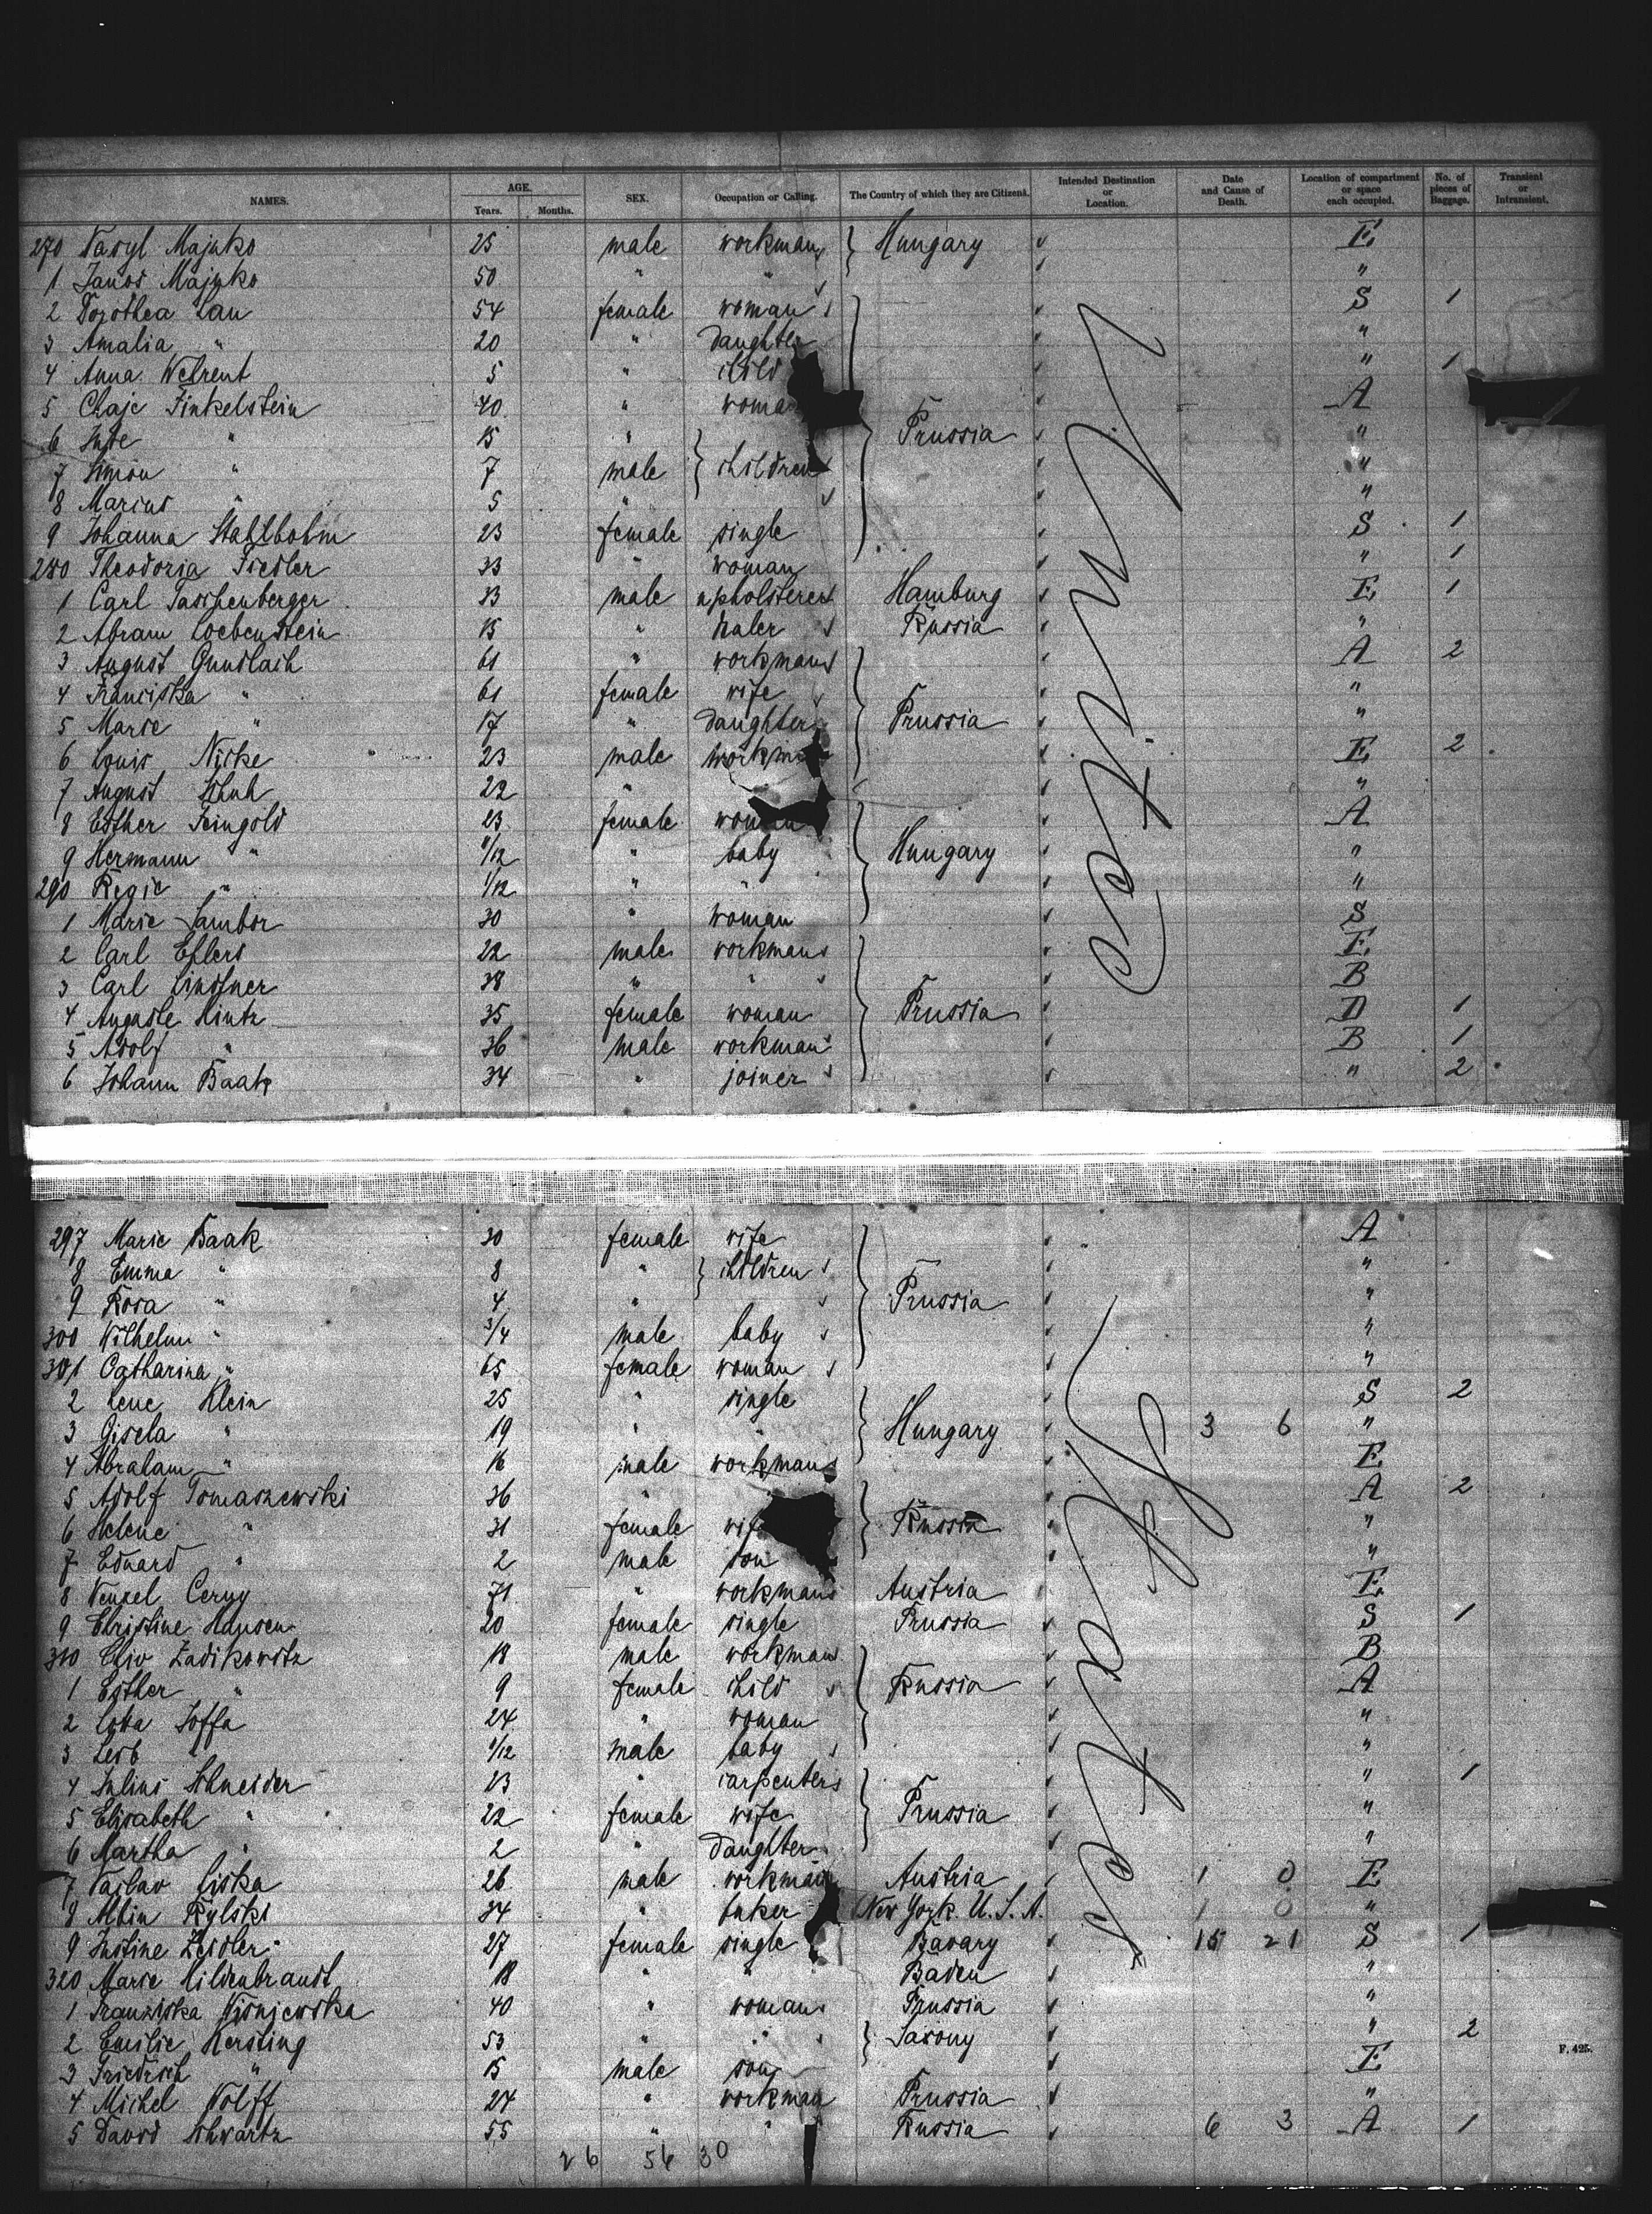 NAMES. AGE. Years. Months. SEX. Occupation or Calling. The Country of which they are Citizens. Intended Destination or Location. Date and Cause of Death. Location of compartment or space each occupied. No. of pieces of Baggage. Transient or Intransient.
270 Vasyl Majuko 25 male workman Hungary E
1 Janos Majuko 50 " " "
2 Dorothea Lau 54 female woman S 1
3 Amalia " 20 " daughter "
4 Anna 5 " child " 1
5 Chaje Finkelstein 40 " woma A
6 " 15 " Prussia "
7 Simon " 7 male children "
8 Marius " 5 " "
9 Johanna Stahlbohm 23 female single S 1
280 Theodoria Fiedler 33 " woman " 1
1 Carl Taschenberger 33 male upholsterer Hamburg E 1
2 Abram Loebenstein 15 " Russia "
3 August Gundlach 61 " workman A 2
4 Franciska " 61 female wife "
5 Marie " 17 " daughter Prussia "
6 Louis Nicke 23 male workma E 2
7 August Schuh 22 " "
8 Esther Feingold 23 female woman A
9 Hermann " /12 " baby Hungary "
290 Regie " 1/12 " " "
1 Marie Sambor 30 " woman S
2 Carl Ehlers 22 male workman E
3 Carl Lindner 38 " " B
4 Auguste Hintz 35 female woman Prussia D 1
5 Adolf " 36 male workman B 1
6 Johann Baak 34 " joiner " 2
297 Marie Baak 30 female wife A
8 Emma " 8 " children "
9 Rosa " 4 " Prussia "
300 Wilhelm " 3/4 male baby "
301 Catharina " 65 female woman "
2 Lene Klein 25 " single S 2
3 Gisela " 19 " " Hungary 3 6 "
4 Abraham " 16 male workman E
5 Adolf Tomaszewski 36 " A 2
6 Helene " 31 female wif Russia "
7 Eduard " 2 male son "
8 Wenzel Cerny 71 " workman Austria E
9 Christine Hansen 20 female single Prussia S 1
310 Zadikowitz 18 male workman B
1 Esther " 9 female child Russia A
2 Joffa 24 " woman "
3 Leib " /12 male baby "
4 Julius Schneider 23 " carpenter " 1
5 Elisabeth " 22 female wife Prussia "
6 Martha " 2 " daughter "
7 Vaclav Liska 26 male workman Austria 1 0 E
8 Albin Rylski 34 " New York U. S. A. 1 0 "
9 Justine Zeidler 27 female single Bavary 15 21 S 1
320 Marie Hildenbrandt 18 " " Baden "
1 Franziska Wisniewska 40 " woman Prussia "
2 Emilie Kersting 53 " " Saxony " 2
3 Friedrich " 15 male son E
4 Michel Wolff 24 " workman Prussia "
5 David Schwartz 55 " " Russia 6 3 A 1
26 56 30
F. 425.